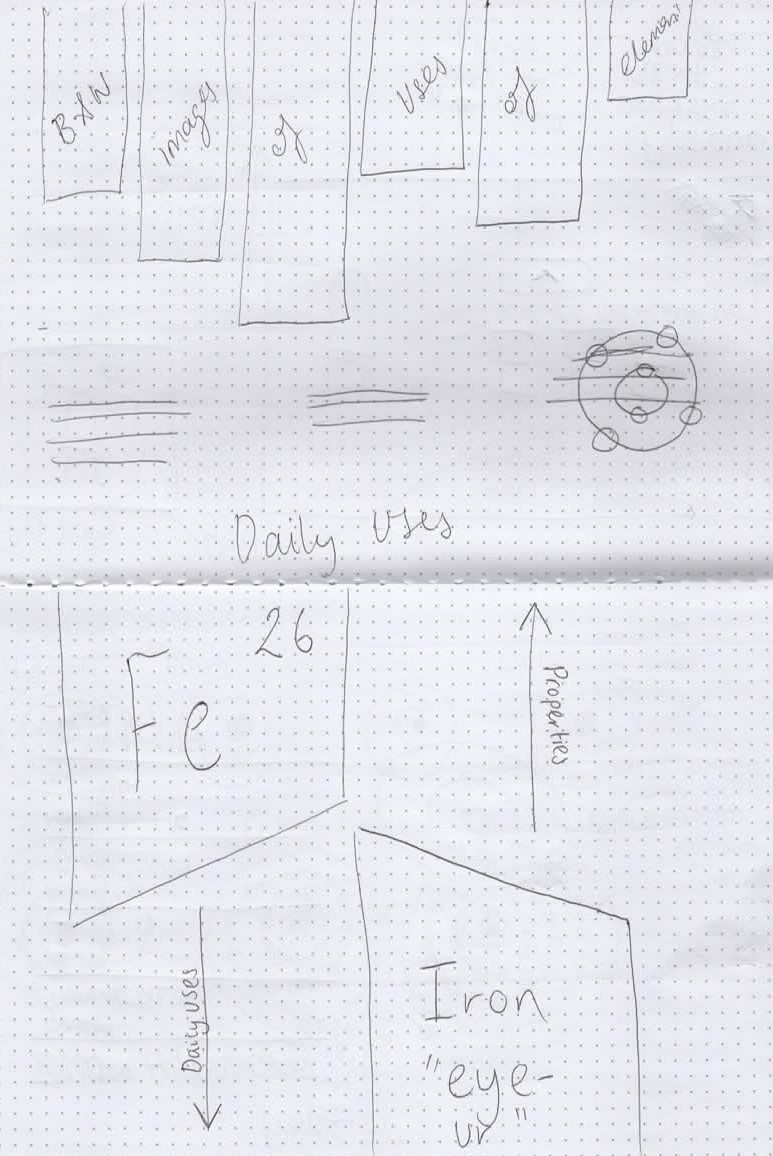 B&W images of uses of element
Daily Uses
26
Fe
Properties
Daily uses
Iron
"eye-
ur"